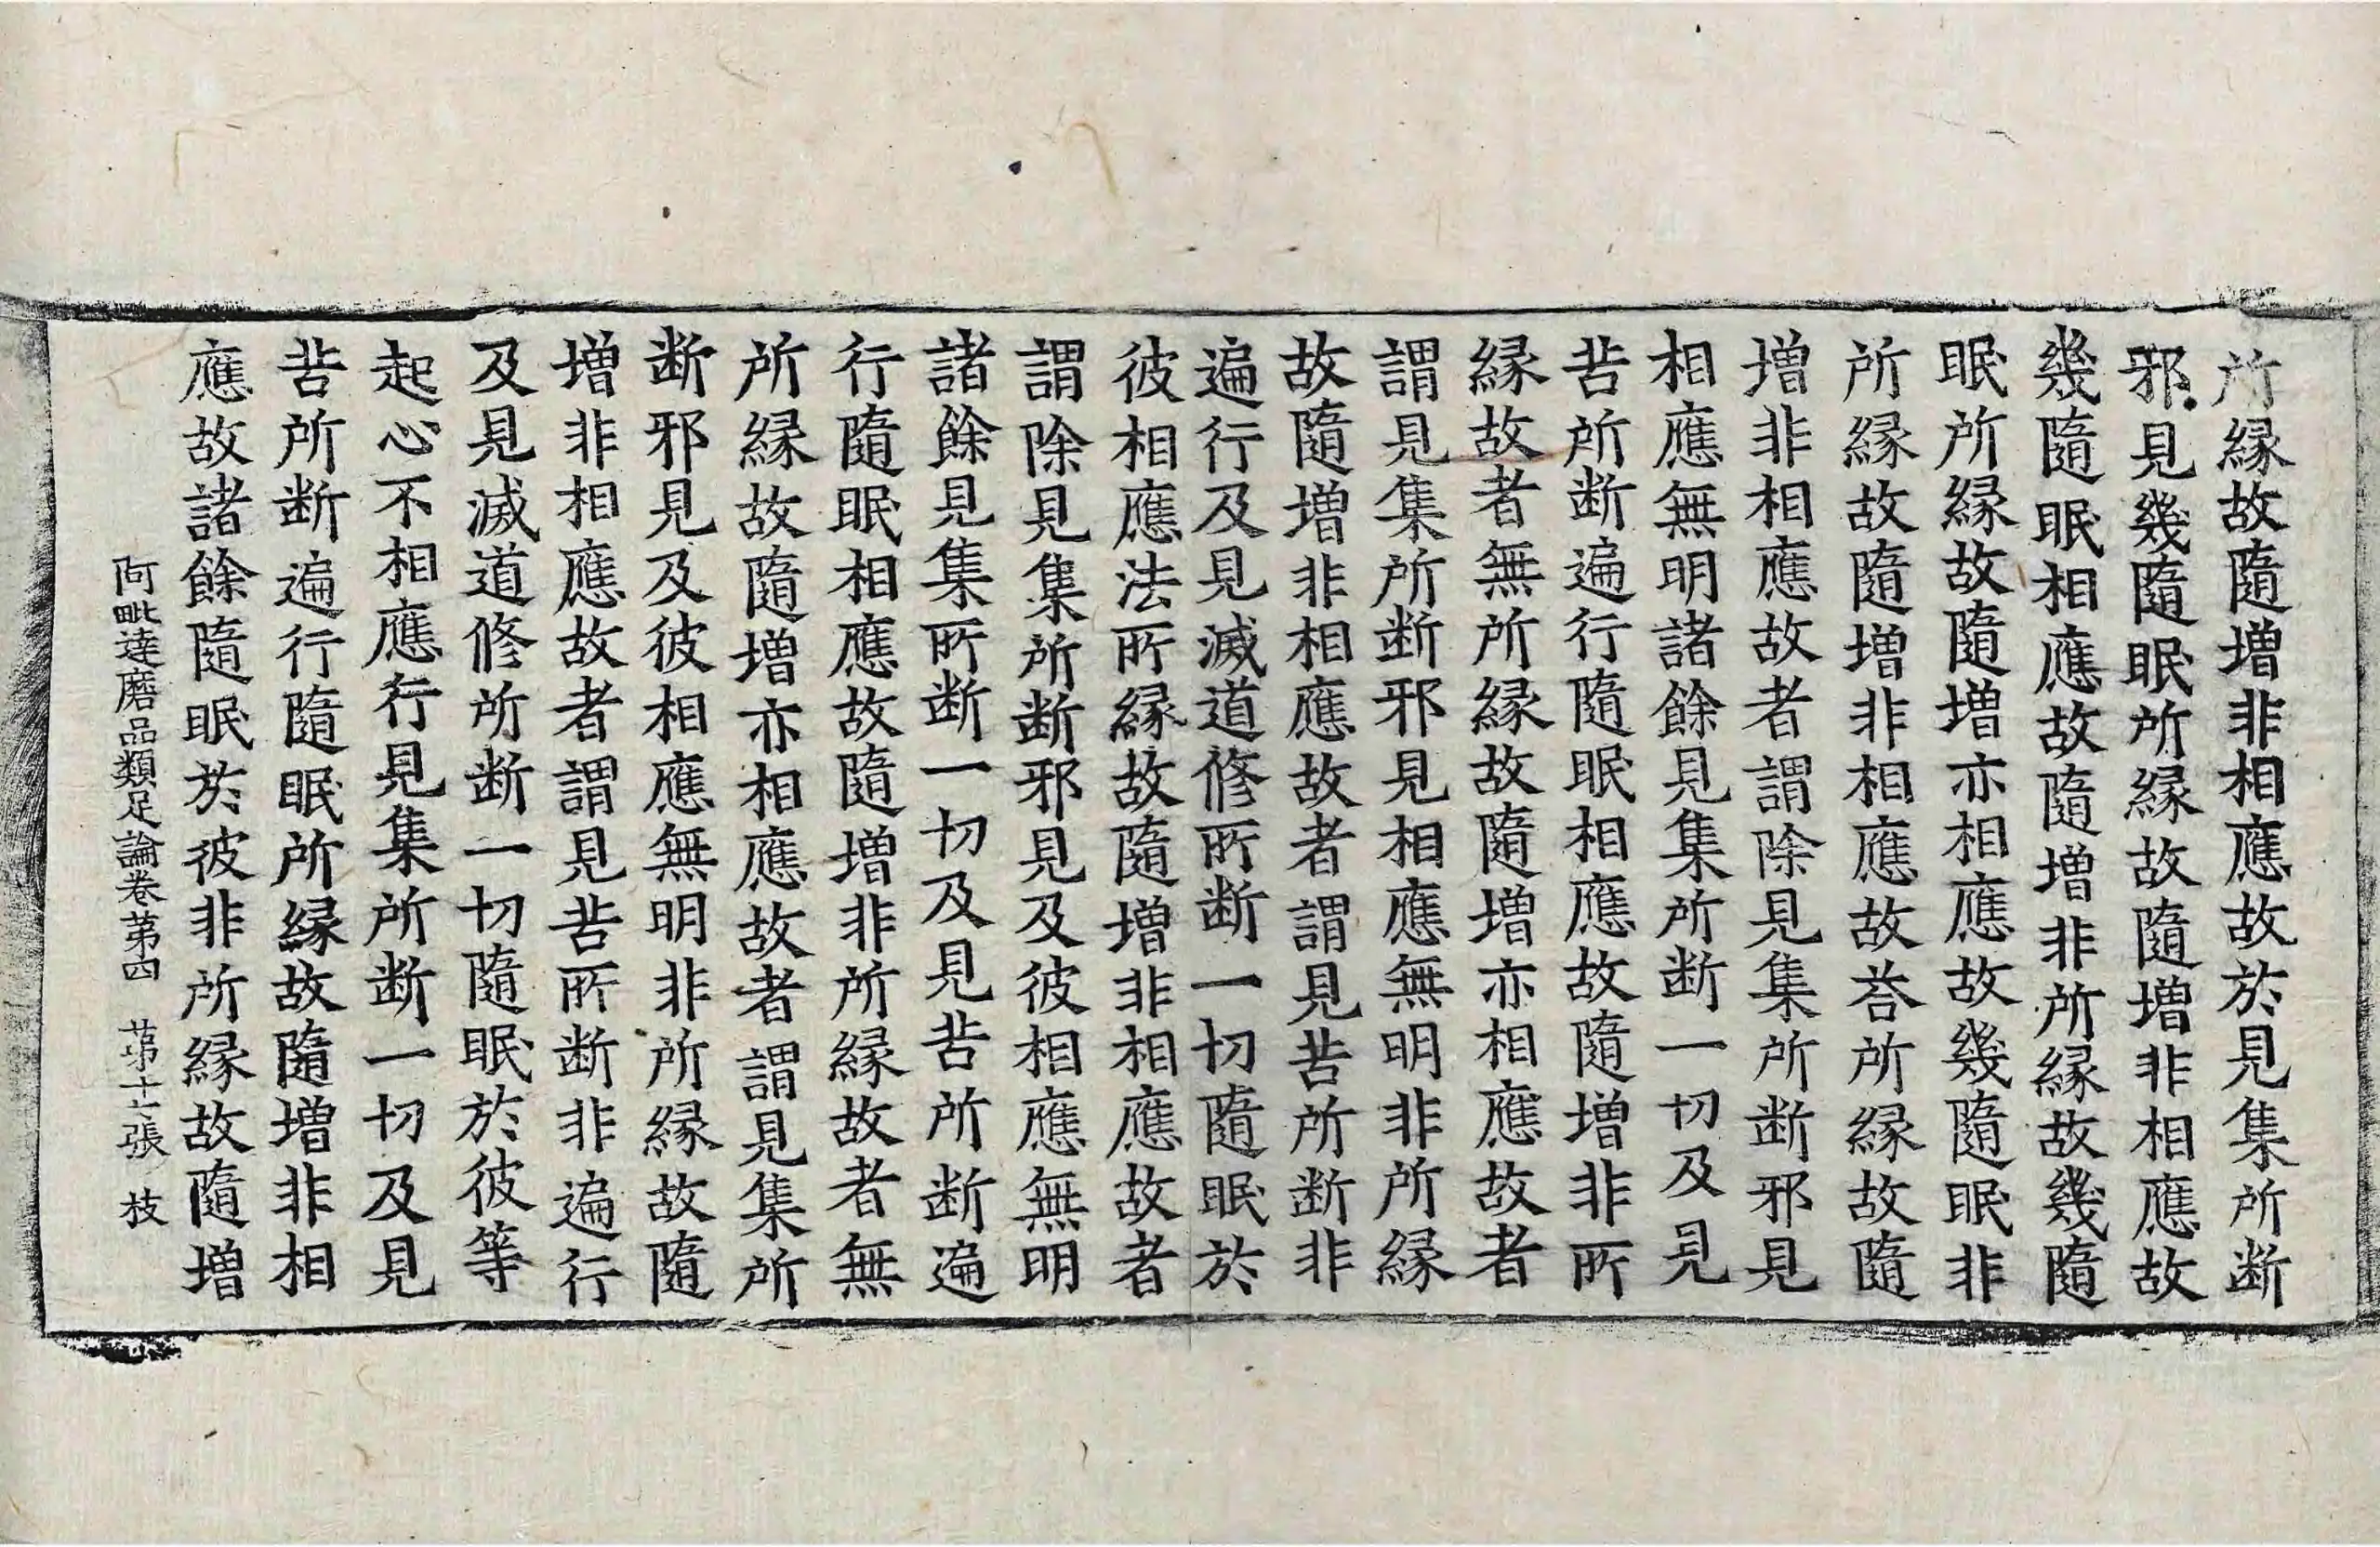 所縁故隨增非相應故於見集所断
邪見幾隨眠所縁故隨增非相應故
幾隨眠相應故隨增非所縁故幾隨
眠所縁故隨增亦相應故幾隨眠非
所縁故隨增非相應故荅所縁故隨
增非相應故者謂除見集所断邪見
相應無明諸餘見集所断一切及見
苦所断遍行隨眠相應故隨增非所
縁故者無所縁故隨增亦相應故者
謂見集所断邪見相應無明非所縁
故隨增非相應故者謂見苦所断非
遍行及見滅道修所断一切隨眠於
彼相應法所縁故隨增非相應故者
謂除見集所断邪見及彼相應無明
諸餘見集所断一切及見苦所断遍
行隨眠相應故隨增非所縁故者無
所縁故隨增亦相應故者謂見集所
断邪見及彼相應無明非所縁故隨
增非相應故者謂見苦所断非遍行
及見滅道修所断一切隨眠於彼等
起心不相應行見集所断一切及見
苦所断遍行隨眠所縁故隨增非相
應故諸餘隨眠於彼非所縁故隨增
阿毗達磨品類足論卷第四 第十二張 枝